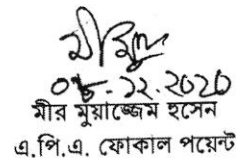 ০৮-১২-2020
মীর মুয়াজ্জেম হুসেন
এ.পি.এ. ফোকাল পয়েন্ট